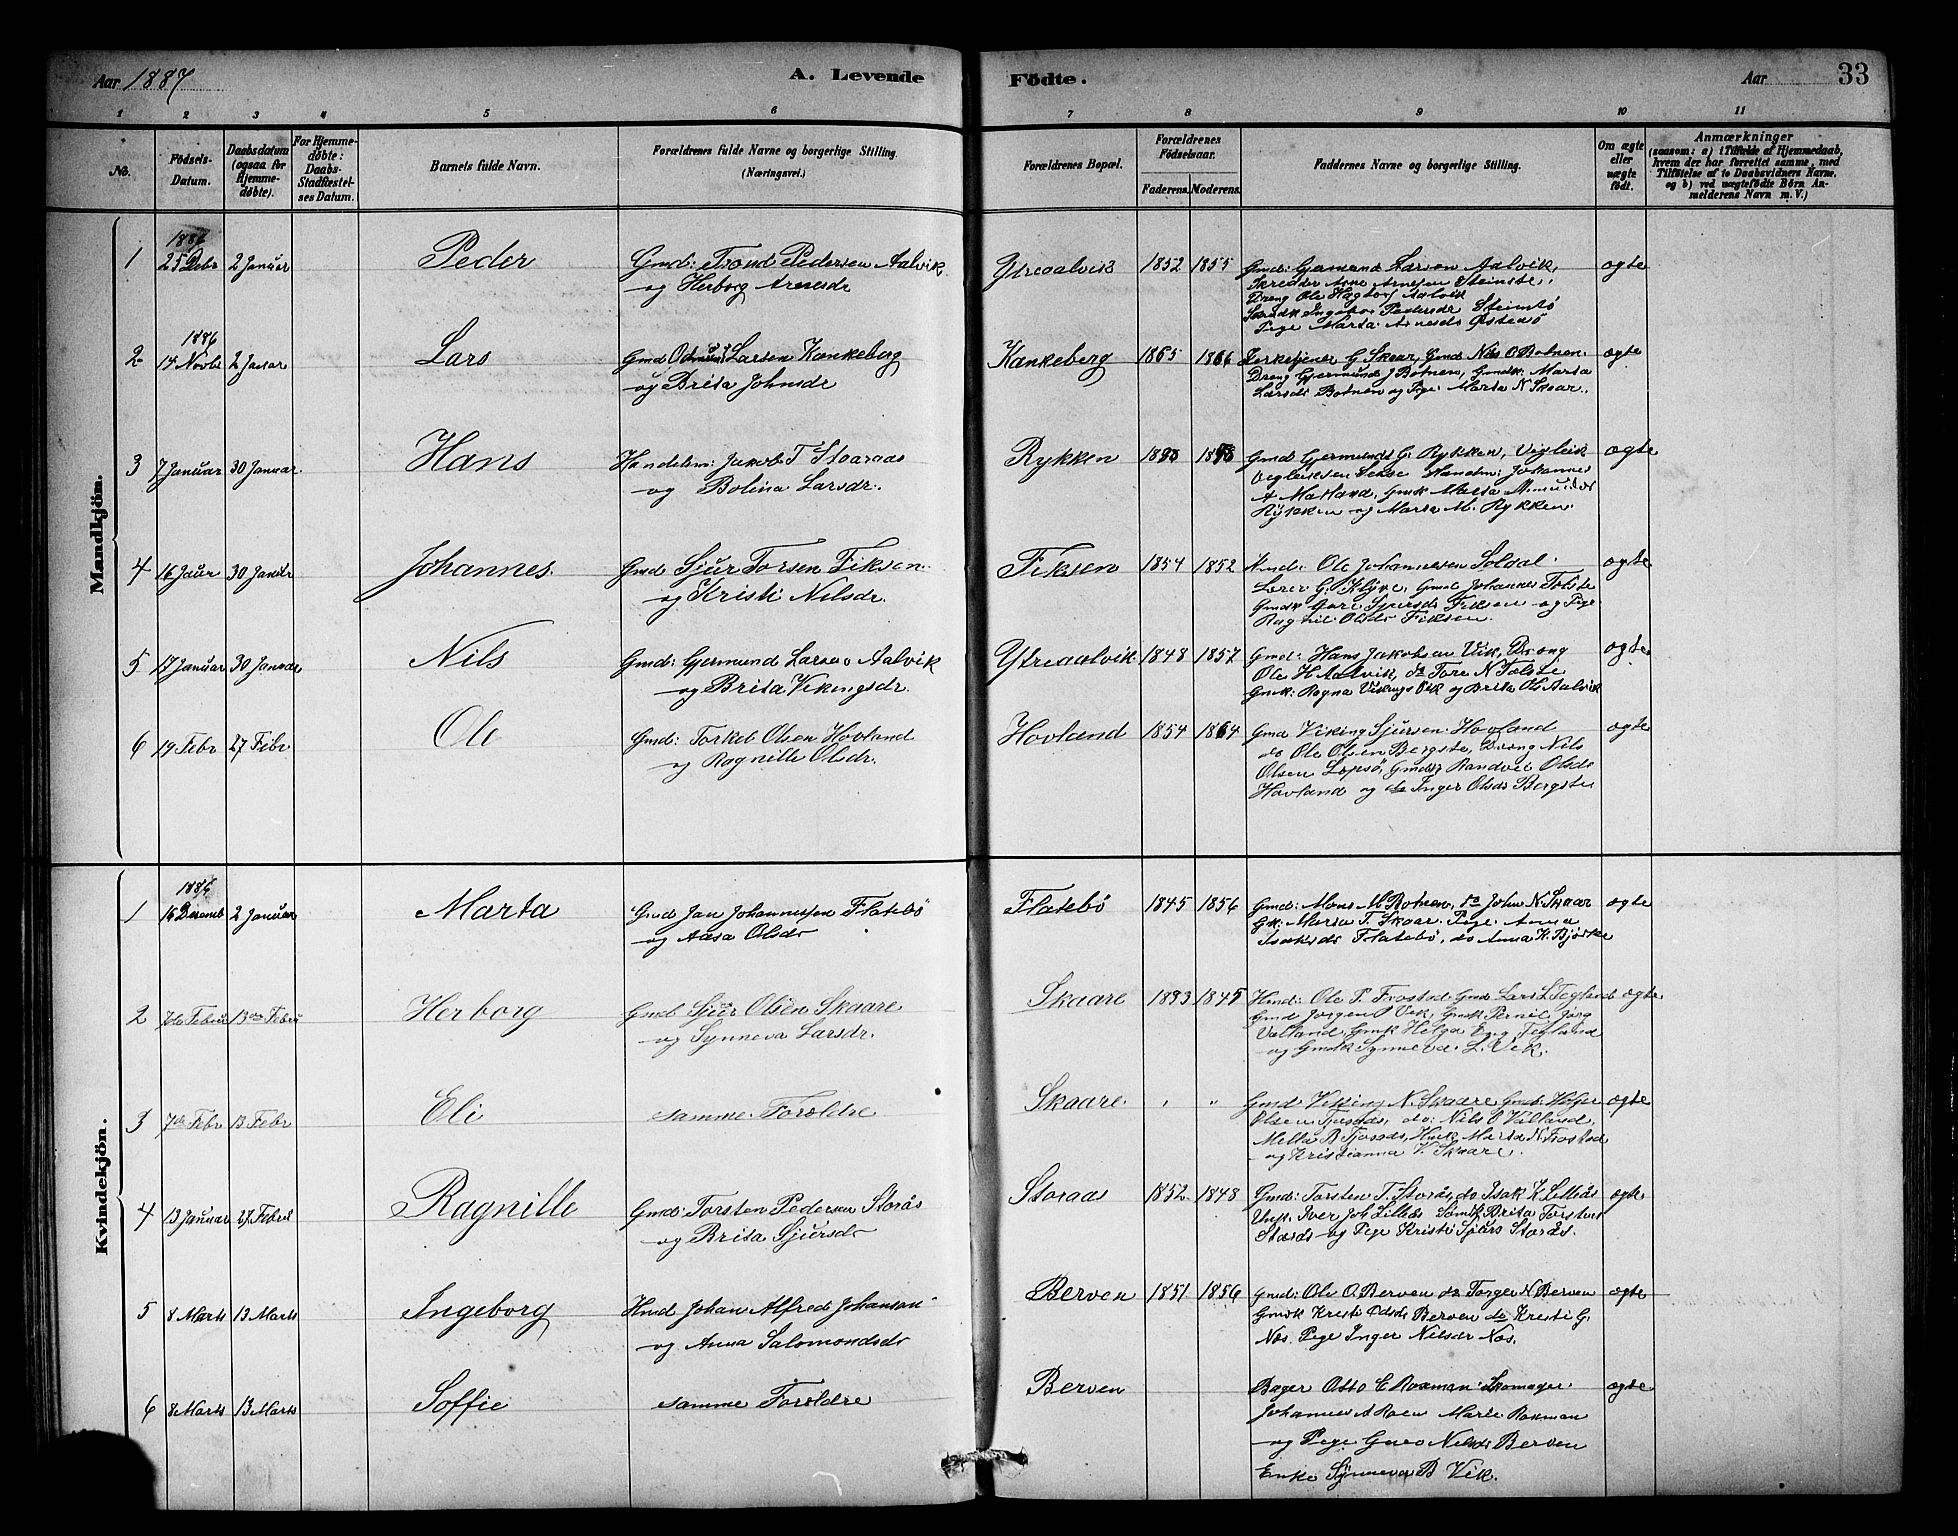 Aar 1887.
A. Levende
Födte.
Aar
33
1 2 3 4 5 6 7 8 9 10 11
No.
Födsels-
Datum.
Daabsdatum
(ogsaa for
Hjemme-
døbte).
For Hjemme-
døbte:
Daabs-
Stadfæstel-
ses Datum.
Barnets fulde Navn.
Forældrenes fulde Navne og borgerlige Stilling.
(Næringsvei.)
Forældrenes Bopæl.
Forældrenes
Födselsaar.
Faderens. Moderens.
Faddernes Navne og borgerlige Stilling.
Om ægte
eller
uægte
födt.
Anmærkninger
(saasom: a) i Tilfælde af Hjemmedaab,
hvem der har forrettet samme, med
Tilföielse af to Daabsvidners Navne,
og b) ved uægtefödte Börn An-
melderens Navn m. V.)
Mandkjön.
1886
1 25 Debr 2 Januar Peder Gmd: Trond Pedersen Aalvik
og Herborg Arnesdr
Ytreaalvik 1852 1855 Gmd: Gjermund Larsen Aalvik,
Skredder Arne Arnesen Steinstø,
Dreng Ole Hagtorf Aalvik
Ingebor Pedersdr Steinstø
Pige Marta Arnesdr Østensø
ægte
1886
2 14 Novbr 2 Januar Lars Gmd Odmund Larsen Kankeberg
og Brita Johnsdr
Kankeberg 1865 1866 Kerketjener G Skaar, Gmd Nils O Botnen.
Dreng Gjermund J Botnen, Gmdk: Marta
Larsdr Botnen og Pige Marta N Skaar.
ægte
3 7 Januar 30 Januar Hans Handelsm: Jakob T Stoaraas
og Bolina Larsdr.
Rykken Gmd Gjermund G. Rykken, Vigleik
Vigleiksen Johannes
A Matland, Gmdk Marta
Rykken og Marta M. Rykken.
ægte
4 16 Jauer 30 Janur Johannes. Gmd Sjur Torsen Fiksen.
og Kristi Nilsdr.
Fiksen 1854 1852 Ole Johannesen Soldal
Lærer G. Klyve, Gmd Johannes Tolste
Gmdk Guro Sjursdr Fiksen og Pige
Ragnil. Olsdr Fiksen.
ægte
5 17 Januar 30 Januar Nils Gmd: Gjermund Larsen Aalvik
og Brita Vikingsdr.
Ytreaalvik 1848 1857 Gmd: Hans Jakobsen Vik, Dreng
Ole H Aalvik, do Tore N Tolste
Gmdk: Ragna Vikings Vik og Brita Ols Aalvik
ægte
6 19 Febr 27 Febr Ole Gmd: Torkel Olsen Hovland
og Ragnille Olsdr.
Hovland 1854 1864 Gmd Viking Sjursen Hovland
do Ole Olsen Bergste, Dreng Nils
Olsen Lepsö, Gmdk Randvei Olsdr
Hovland og do Inger Olsdr Bergste
ægte
Kvindekjön.
1886
1 16 Desemb 2 Januar Marta Gmd Jan Johannessen Flatebø
og Aasa Olsdr
Flatebø 1845 1856 Gmd: Mons M Botnen, do John N. Skaar
Gk: Marta T. Skaar. Pige Anna
Isaksdr Flatebö, do Anna K. Bjørke
ægte
2 7de Febru 13de Febru Herborg Gmd Sjur Olsen Skaare
og Synneva Larsdr.
Skaare 1845 Hmd: Ole P. Frostad Gmd Lars L Tegland
Gmd Jørgen Vik, Gmdk Pernil Jørg
Valland, Gmdk Helga Tegland
og Gmdk Synneva L. Vik.
ægte
3 7de Febr 13 Febr Eli samme Foreldre
Skaare. " " Gmd Viking N. Skaare Gmd: Helge
Olsen do: Nils O Valland,
Metta B Marta N Frostad
og Kristianna V. Skaare.
ægte
4 13 Januar 27. Febru Ragnille Gmd: Torsten Pedersen Storås
og Brita Sjursdr
Storaas 1852 1848 Gmd: Torsten T. Storås do Isak K. Lillås
Ungk. Iver Joh Lillås Brita Torstens
Storås og Pige Kristi Sjurs Storås.
ægte
5 8 Marts 13 Marts Ingeborg Hmd Johan Alfred Johanson
og Anna Salomondsdr
Berven 1851 1856 Gmd: Ole O. Berven do Torger N. Berven
Gmdk Kristi Odsdr Berven do Kristi G.
Nøs. Pige Inger Nilsdr Nøs.
ægte
6 8 Marts 13 Marts Soffie samme Foroldre
Berven Bager Otto E Roxman Skomager
Johannes A Roen Marie Roxman
og Pige Guro Nilsdr Berven
Enke Synneva B Vik.
ægte